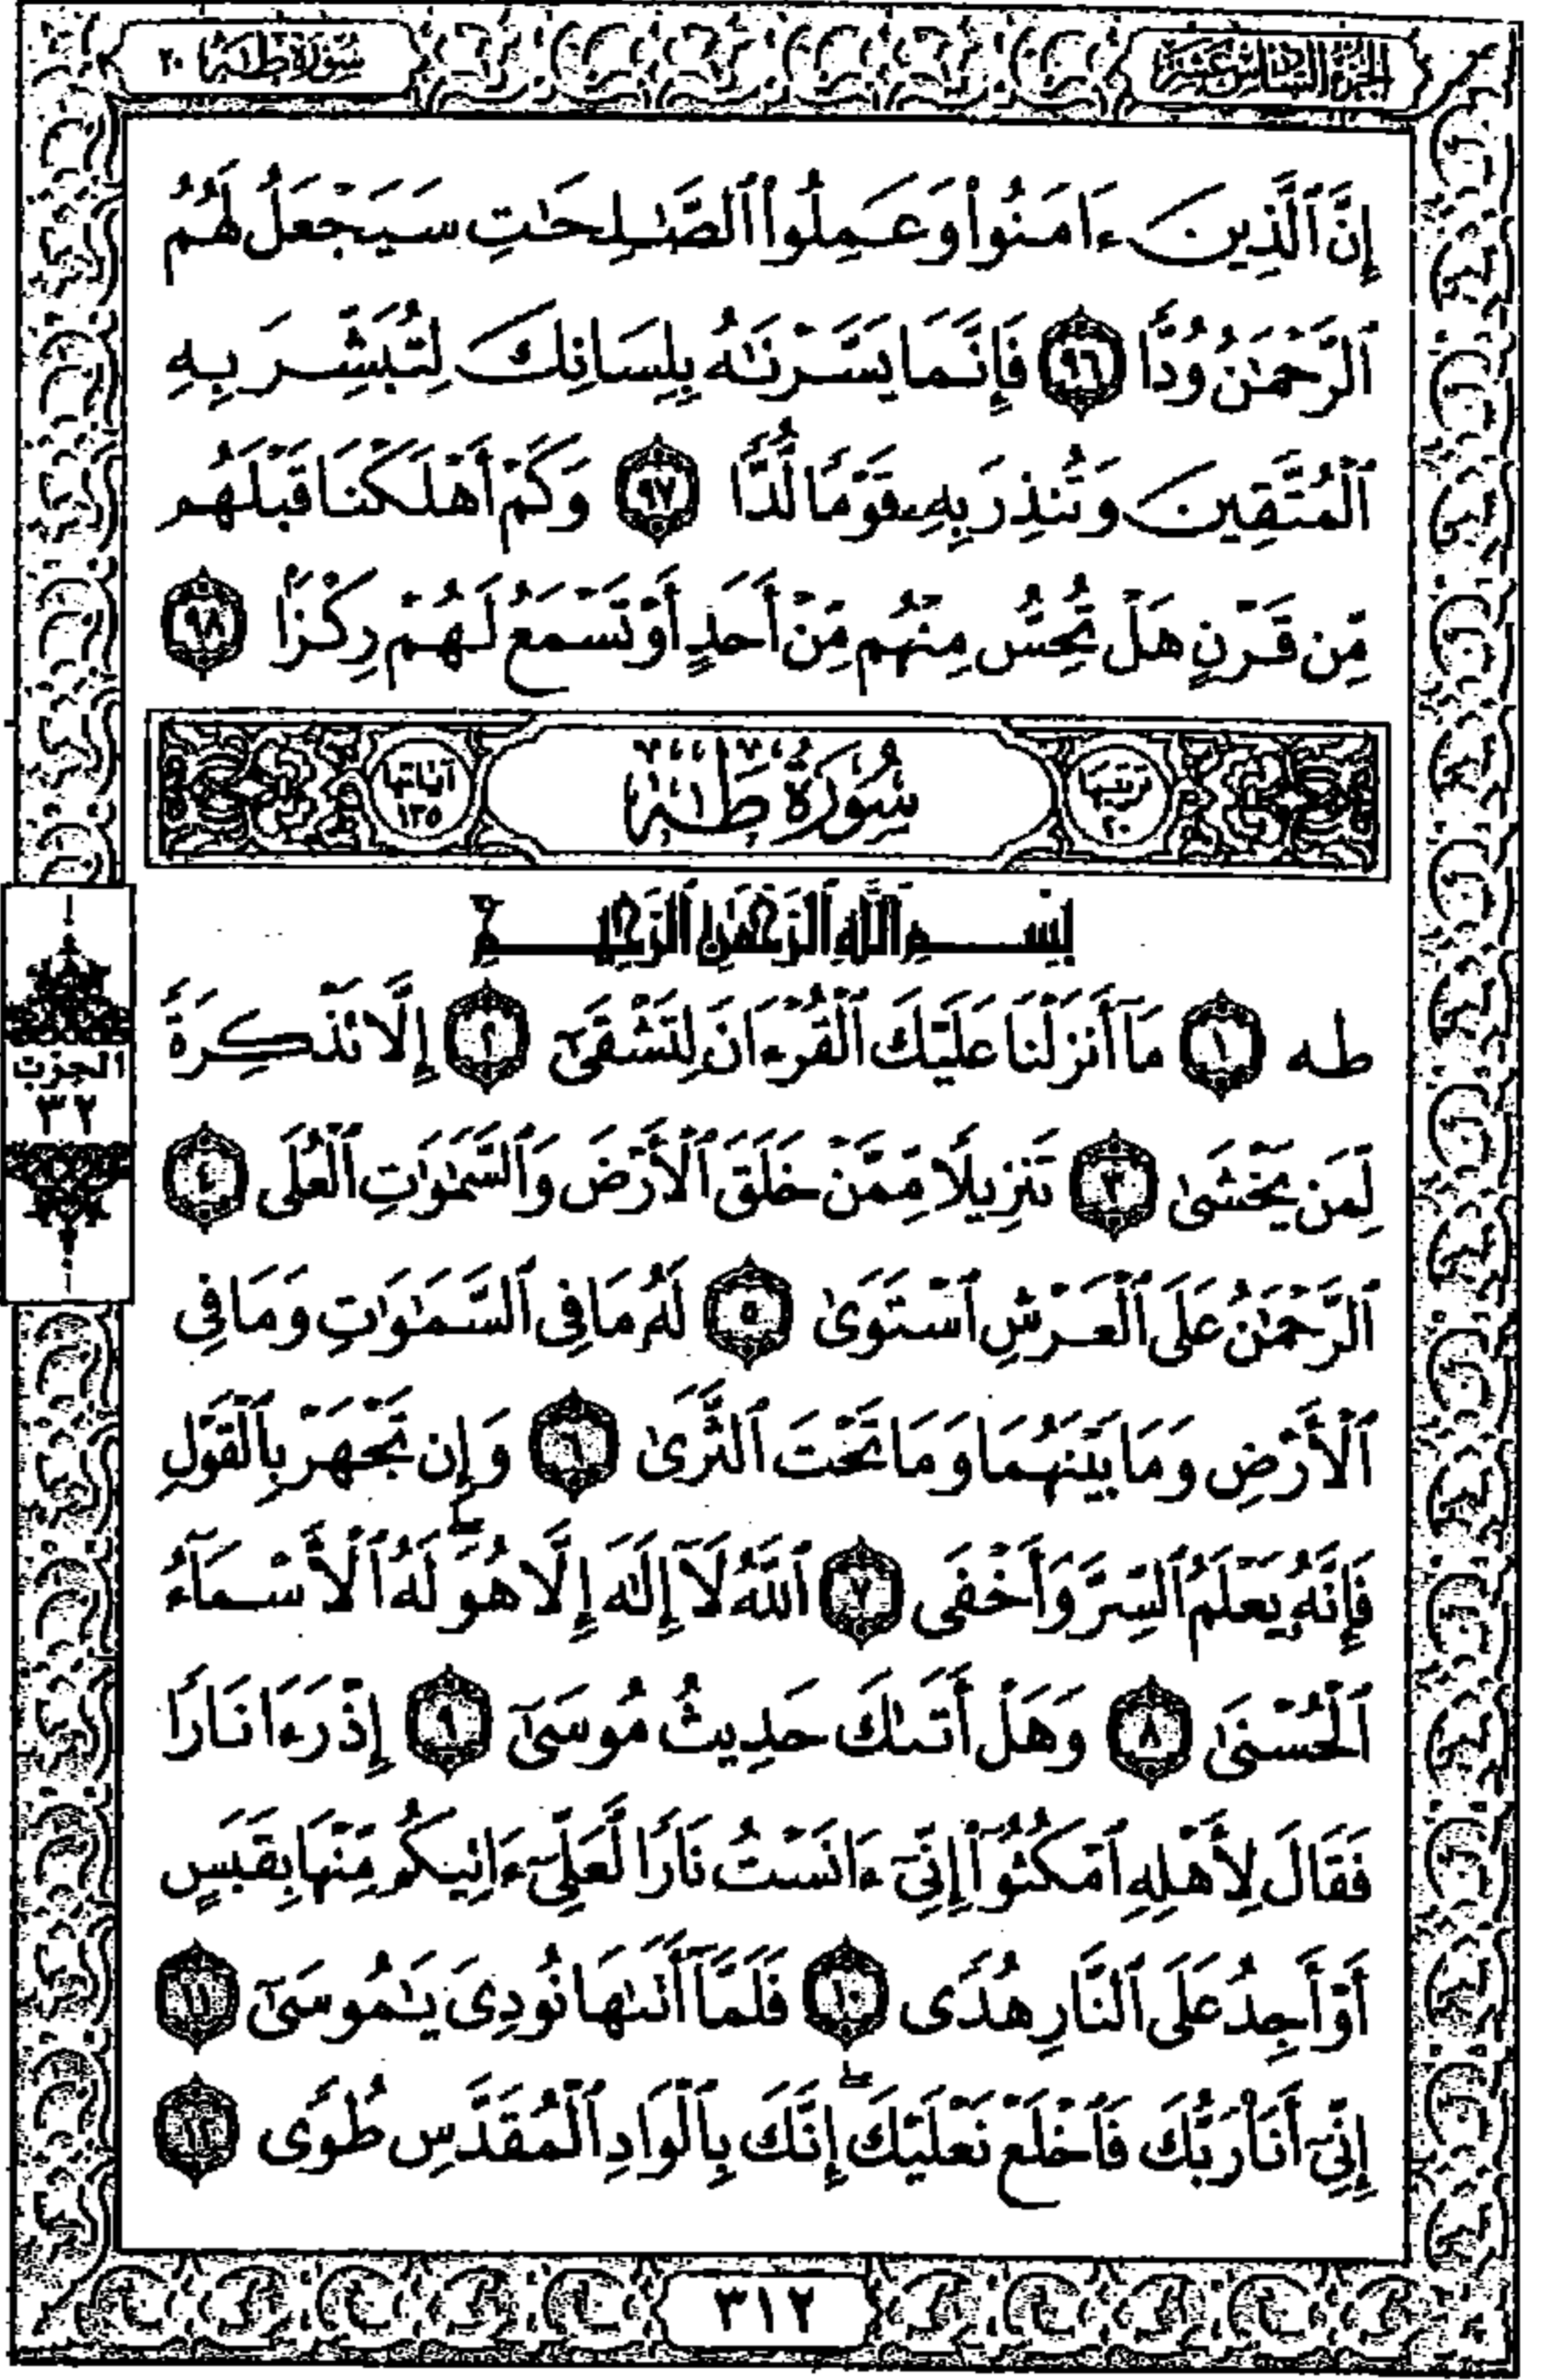 الجزء السادس عشر
سورة طه ٢٠
إِنَّ ٱلَّذِينَ ءَامَنُوا۟ وَعَمِلُوا۟ ٱلصَّـٰلِحَـٰتِ سَيَجْعَلُ لَهُمُ
ٱلرَّحْمَـٰنُ وُدًّا ٩٦ فَإِنَّمَا يَسَّرْنَـٰهُ بِلِسَانِكَ لِتُبَشِّرَ بِهِ
ٱلْمُتَّقِينَ وَتُنذِرَ بِهِۦ قَوْمًا لُّدًّا ٩٧ وَكَمْ أَهْلَكْنَا قَبْلَهُم
مِّن قَرْنٍ هَلْ تُحِسُّ مِنْهُم مِّنْ أَحَدٍ أَوْ تَسْمَعُ لَهُمْ رِكْزًۢا ٩٨
ترتيبها ٢٠
سُورَةُ طَهَ
آياتها ١٣٥
بِسْمِ ٱللَّهِ ٱلرَّحْمَـٰنِ ٱلرَّحِيمِ
طه ١ مَآ أَنزَلْنَا عَلَيْكَ ٱلْقُرْءَانَ لِتَشْقَىٰٓ ٢ إِلَّا تَذْكِرَةً
لِّمَن يَخْشَىٰ ٣ تَنزِيلًا مِّمَّنْ خَلَقَ ٱلْأَرْضَ وَٱلسَّمَـٰوَٰتِ ٱلْعُلَى ٤
ٱلرَّحْمَـٰنُ عَلَى ٱلْعَرْشِ ٱسْتَوَىٰ ٥ لَهُۥ مَا فِى ٱلسَّمَـٰوَٰتِ وَمَا فِى
ٱلْأَرْضِ وَمَا بَيْنَهُمَا وَمَا تَحْتَ ٱلثَّرَىٰ ٦ وَإِن تَجْهَرْ بِٱلْقَوْلِ
فَإِنَّهُۥ يَعْلَمُ ٱلسِّرَّ وَأَخْفَى ٧ ٱللَّهُ لَآ إِلَـٰهَ إِلَّا هُوَ ۖ لَهُ ٱلْأَسْمَآءُ
ٱلْحُسْنَىٰ ٨ وَهَلْ أَتَىٰكَ حَدِيثُ مُوسَىٰٓ ٩ إِذْ رَءَا نَارًا
فَقَالَ لِأَهْلِهِ ٱمْكُثُوٓا۟ إِنِّىٓ ءَانَسْتُ نَارًا لَّعَلِّىٓ ءَاتِيكُم مِّنْهَا بِقَبَسٍ
أَوْ أَجِدُ عَلَى ٱلنَّارِ هُدًى ١٠ فَلَمَّآ أَتَىٰهَا نُودِىَ يَـٰمُوسَىٰٓ ١١
إِنِّىٓ أَنَا۠ رَبُّكَ فَٱخْلَعْ نَعْلَيْكَ ۖ إِنَّكَ بِٱلْوَادِ ٱلْمُقَدَّسِ طُوًى ١٢
الحزب
٣٢
٣١٢